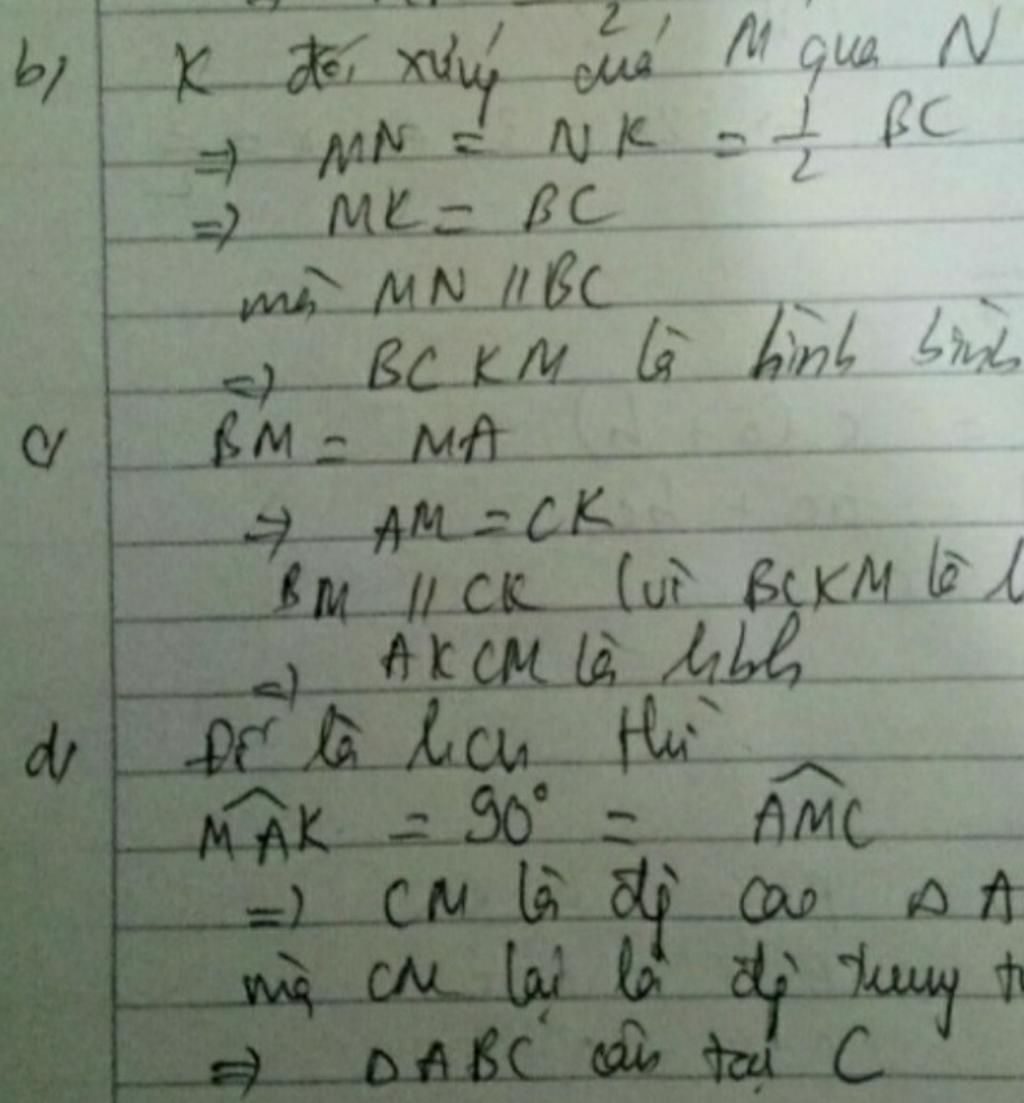 b) K đối xứng của M qua N
=> MN = NK = 1/2 BC
=> MK = BC
mà MN // BC
=> BCKM là hình bình
c) BM = MA
=> AM = CK
BM // CK (vì BCKM là
=> AKCM là hbh
d) Để là hcn thì
MAK^ = 90° = AMC^
=> CM là đg cao Δ A
mà CM lại là đg trung
=> ΔABC cân tại C